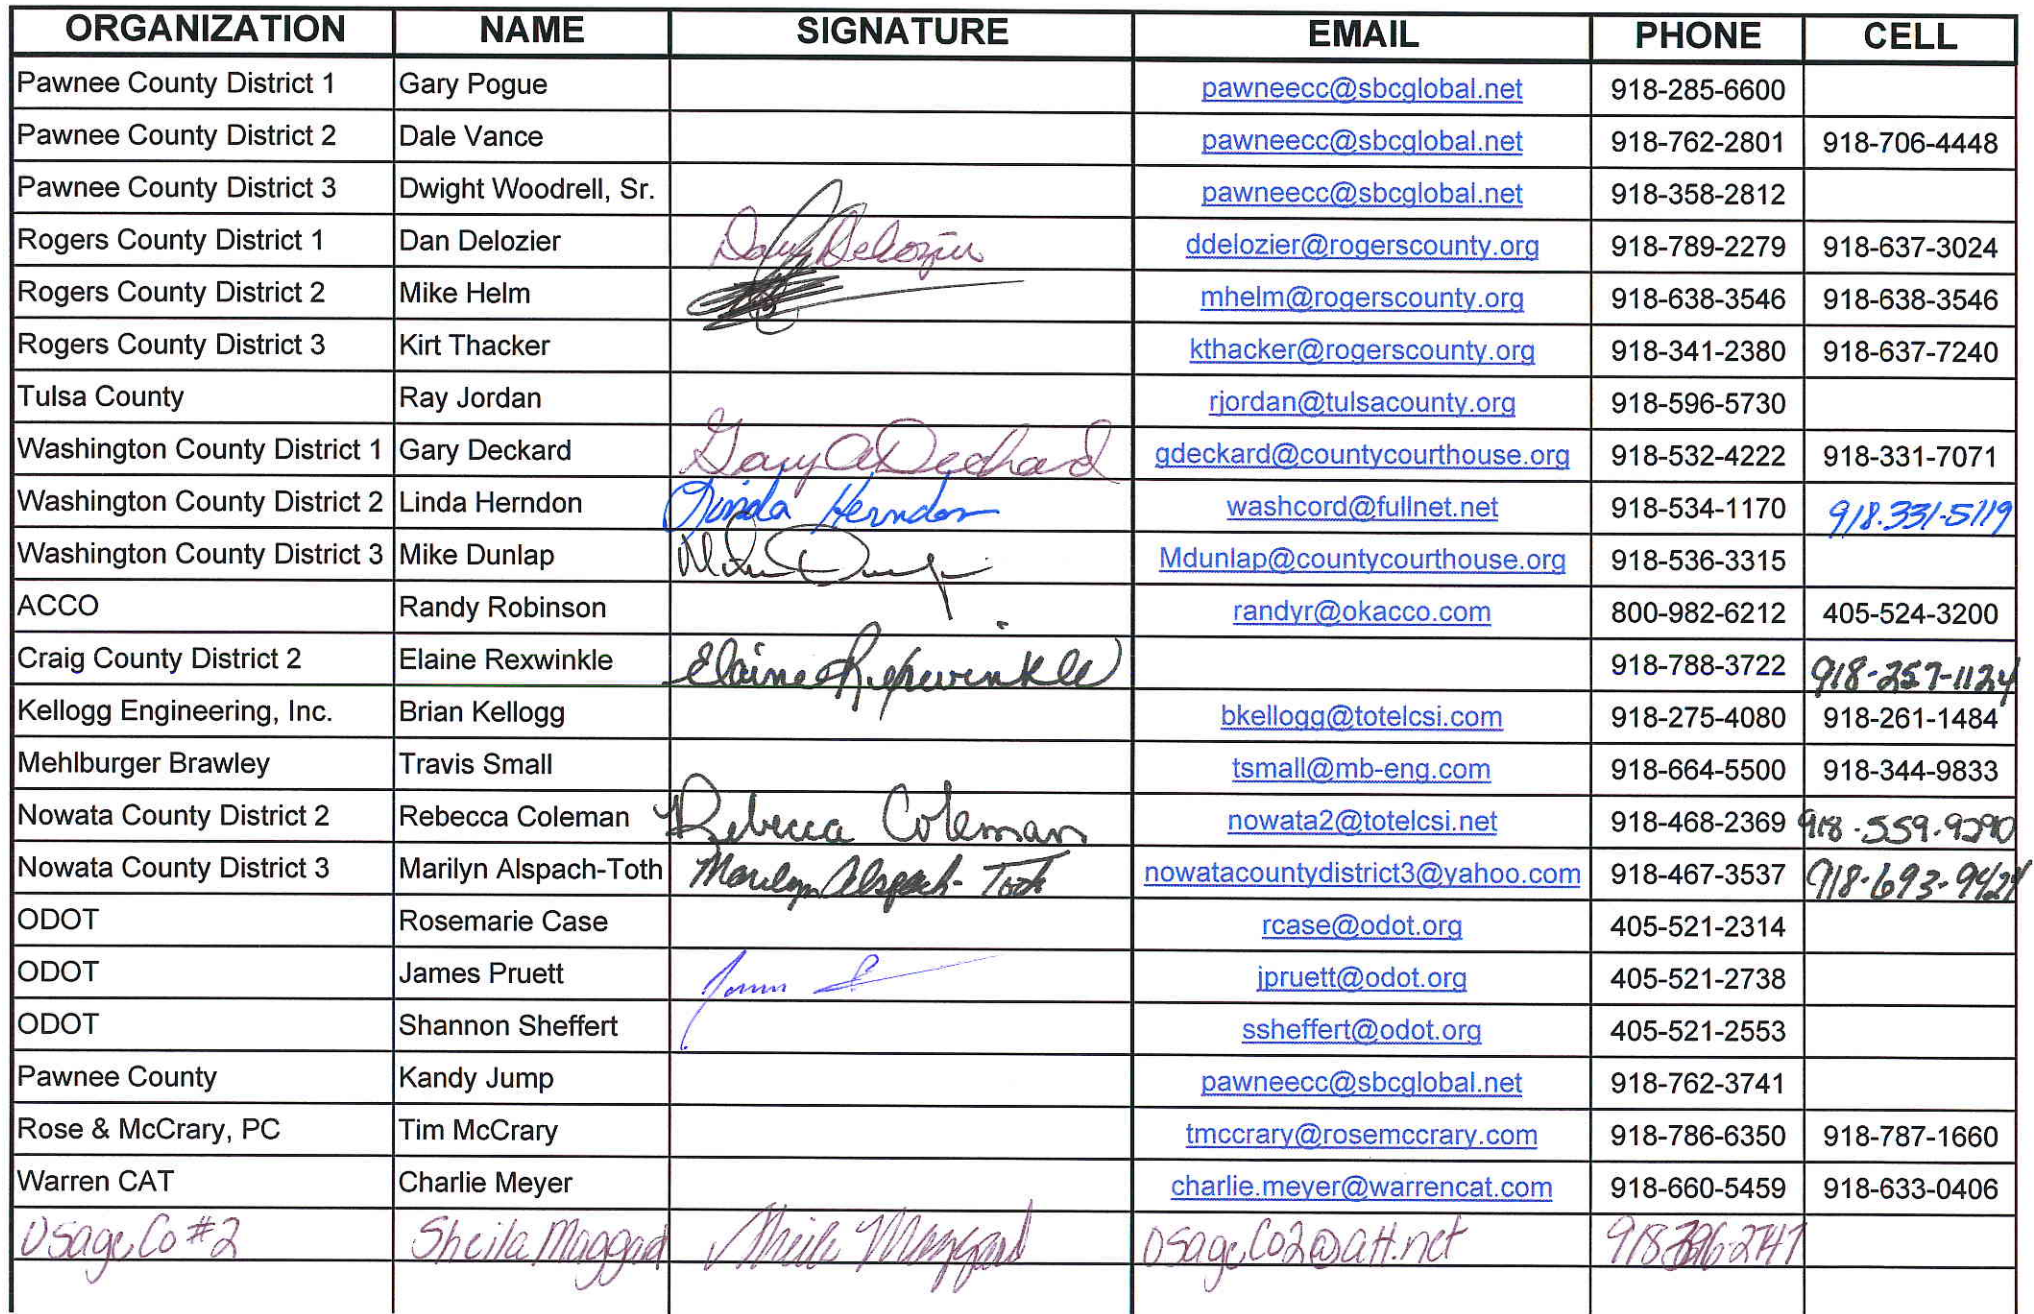 ORGANIZATION NAME SIGNATURE EMAIL PHONE CELL
Pawnee County District 1 Gary Pogue pawneecc@sbcglobal.net 918-285-6600
Pawnee County District 2 Dale Vance pawneecc@sbcglobal.net 918-762-2801 918-706-4448
Pawnee County District 3 Dwight Woodrell, Sr. pawneecc@sbcglobal.net 918-358-2812
Rogers County District 1 Dan Delozier Dan Delozier ddelozier@rogerscounty.org 918-789-2279 918-637-3024
Rogers County District 2 Mike Helm mhelm@rogerscounty.org 918-638-3546 918-638-3546
Rogers County District 3 Kirt Thacker kthacker@rogerscounty.org 918-341-2380 918-637-7240
Tulsa County Ray Jordan rjordan@tulsacounty.org 918-596-5730
Washington County District 1 Gary Deckard Gary A Deckard gdeckard@countycourthouse.org 918-532-4222 918-331-7071
Washington County District 2 Linda Herndon Linda Herndon washcord@fullnet.net 918-534-1170 918.331-5119
Washington County District 3 Mike Dunlap Mike Dunlap Mdunlap@countycourthouse.org 918-536-3315
ACCO Randy Robinson randyr@okacco.com 800-982-6212 405-524-3200
Craig County District 2 Elaine Rexwinkle Elaine Rexwinkle 918-788-3722 918-257-1124
Kellogg Engineering, Inc. Brian Kellogg bkellogg@totelcsi.com 918-275-4080 918-261-1484
Mehlburger Brawley Travis Small tsmall@mb-eng.com 918-664-5500 918-344-9833
Nowata County District 2 Rebecca Coleman Rebecca Coleman nowata2@totelcsi.net 918-468-2369 918-559-9290
Nowata County District 3 Marilyn Alspach-Toth Marilyn Alspach-Toth nowatacountydistrict3@yahoo.com 918-467-3537 918-693-9424
ODOT Rosemarie Case rcase@odot.org 405-521-2314
ODOT James Pruett James jpruett@odot.org 405-521-2738
ODOT Shannon Sheffert ssheffert@odot.org 405-521-2553
Pawnee County Kandy Jump pawneecc@sbcglobal.net 918-762-3741
Rose & McCrary, PC Tim McCrary tmccrary@rosemccrary.com 918-786-6350 918-787-1660
Warren CAT Charlie Meyer charlie.meyer@warrencat.com 918-660-5459 918-633-0406
Osage Co #2 Sheila Maggard Sheila Maggard OsageCo2@att.net